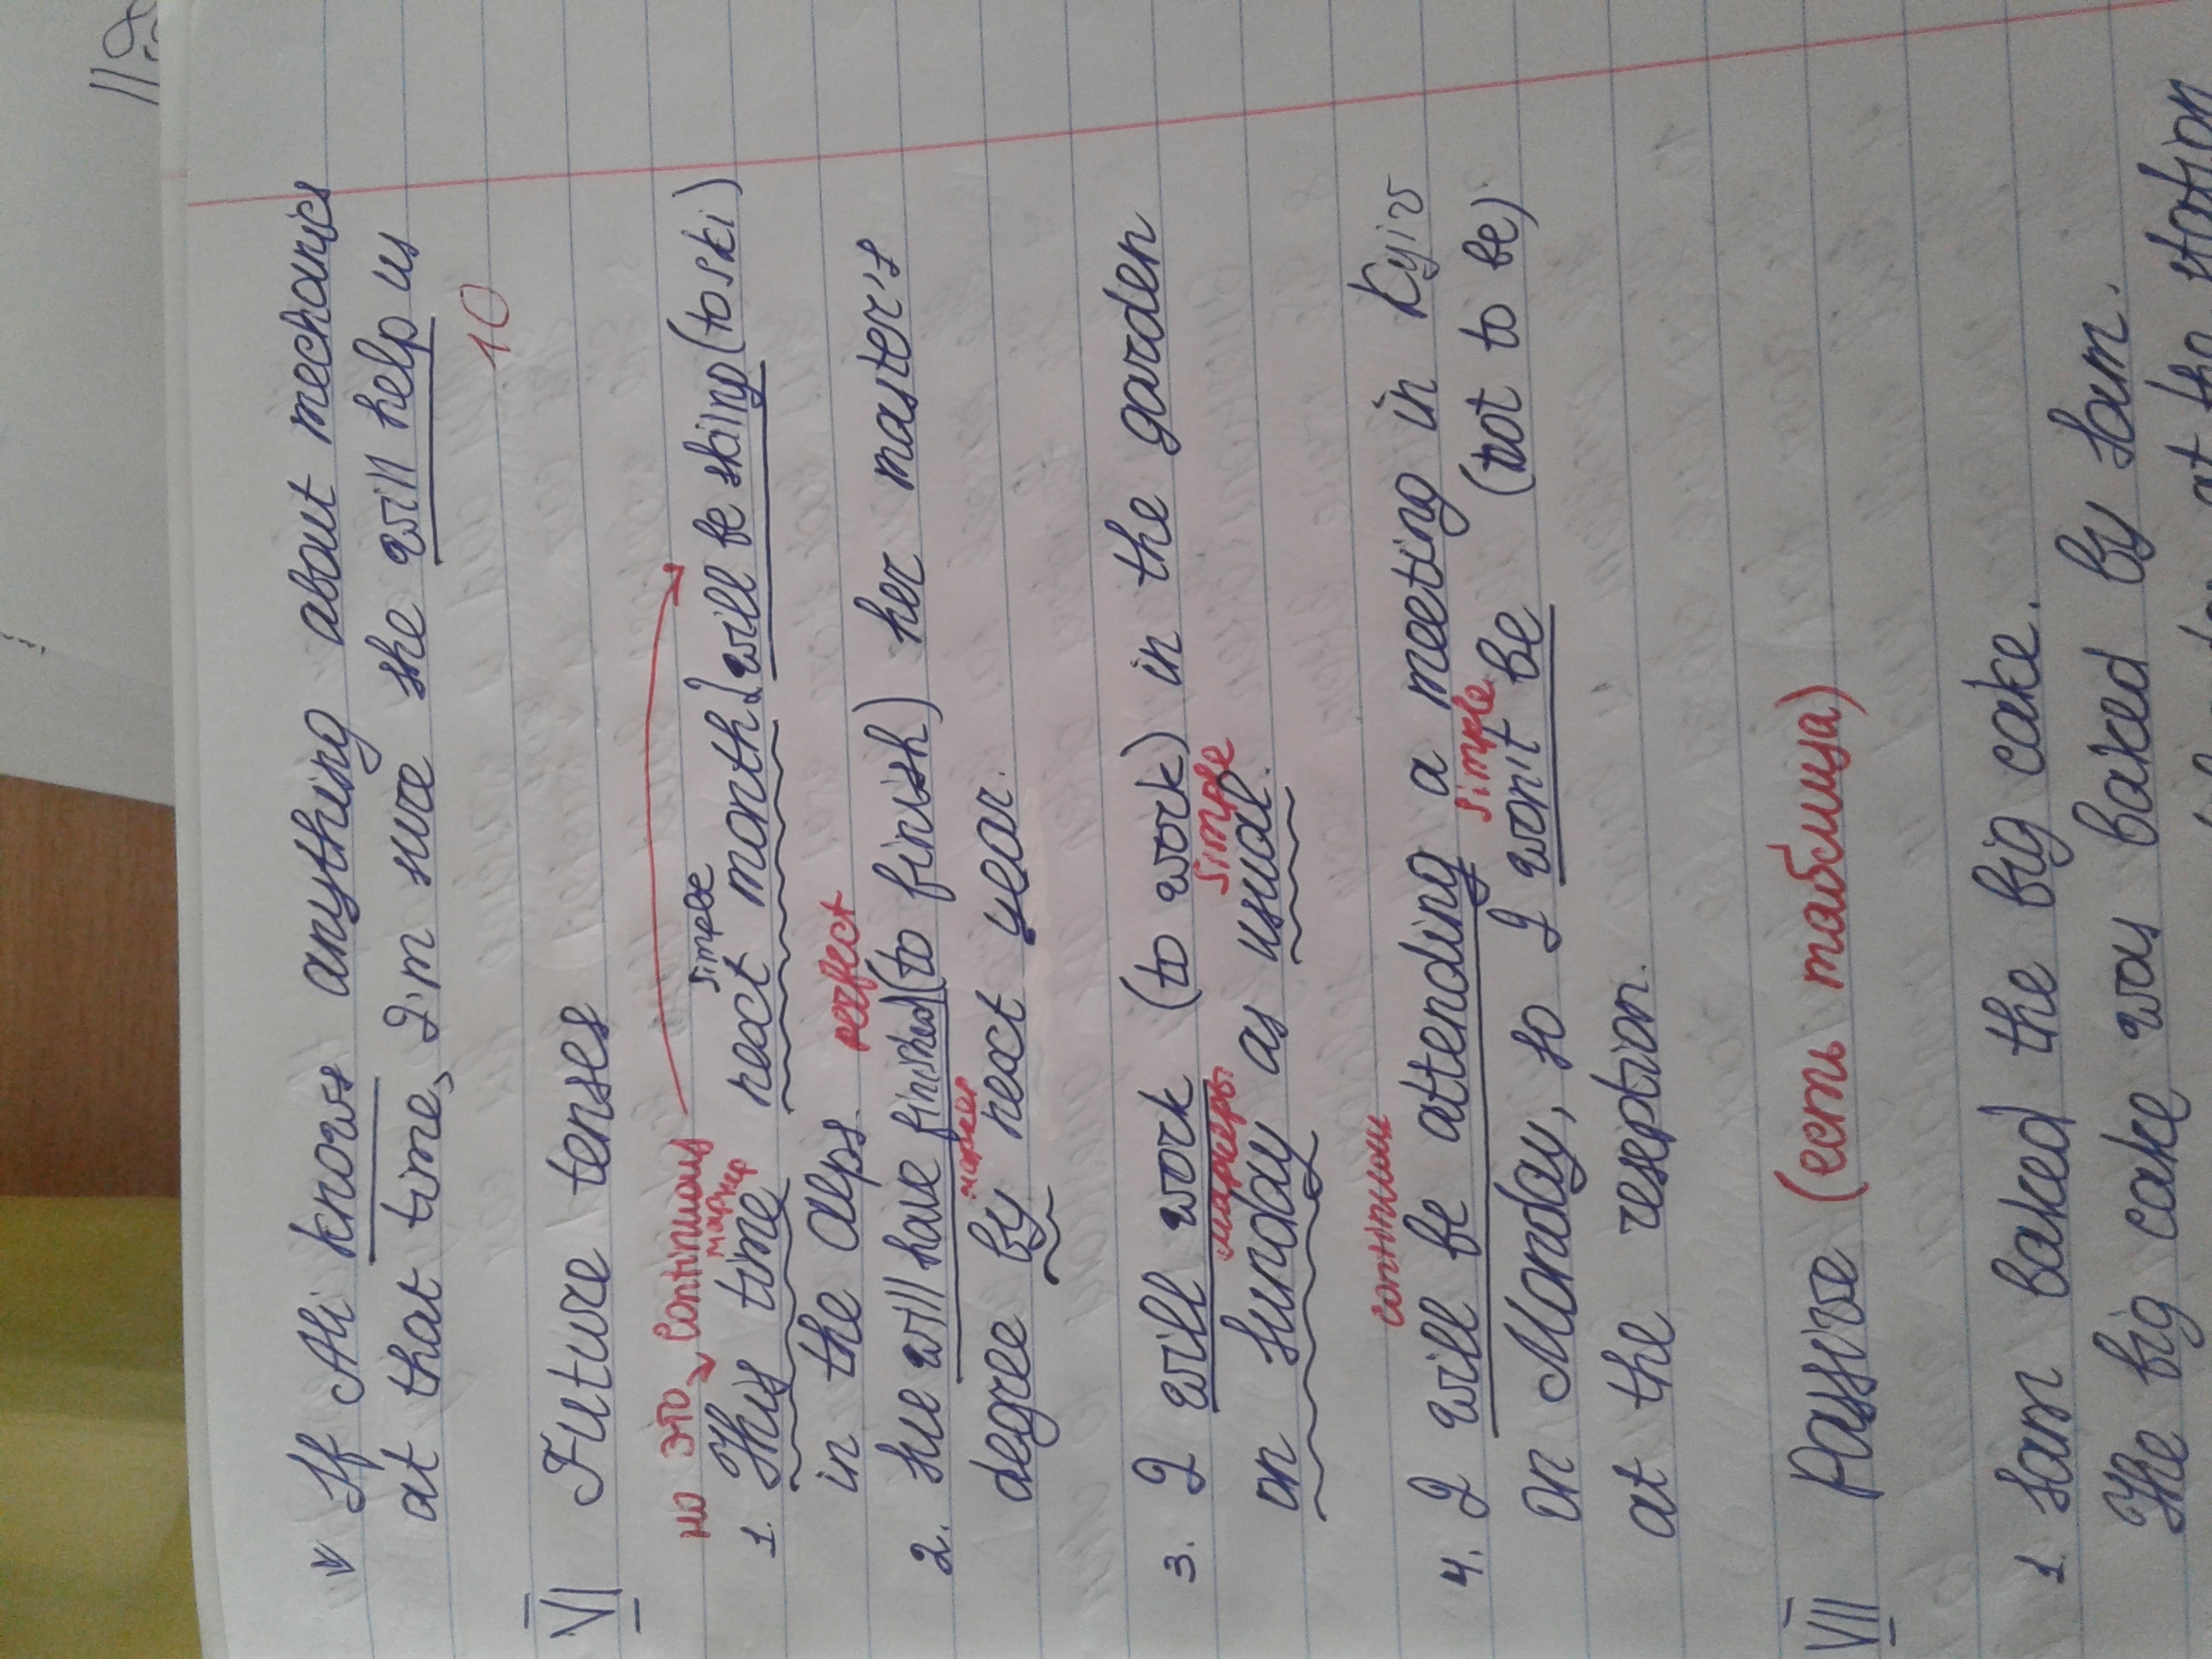 v If Ali knows anything about mechanics
at that time, I'm sure she will help us
10
VI Future tenses
но это continuous simple
маркер
1. This time next month I will be skiing (to ski)
in the alps. perfect
2. She will have finished (to finish) her master's
маркер
degree by next year.
3. I will work (to work) in the garden
маркеры simple
on Sunday as usual.
continuous
4. I will be attending a meeting in Kyiv
simple
on Monday, so I won't be (not to be)
at the reseption.
VII Passive (есть таблица)
1. Sam baked the big cake.
The big cake was baked by Sam.
at the station